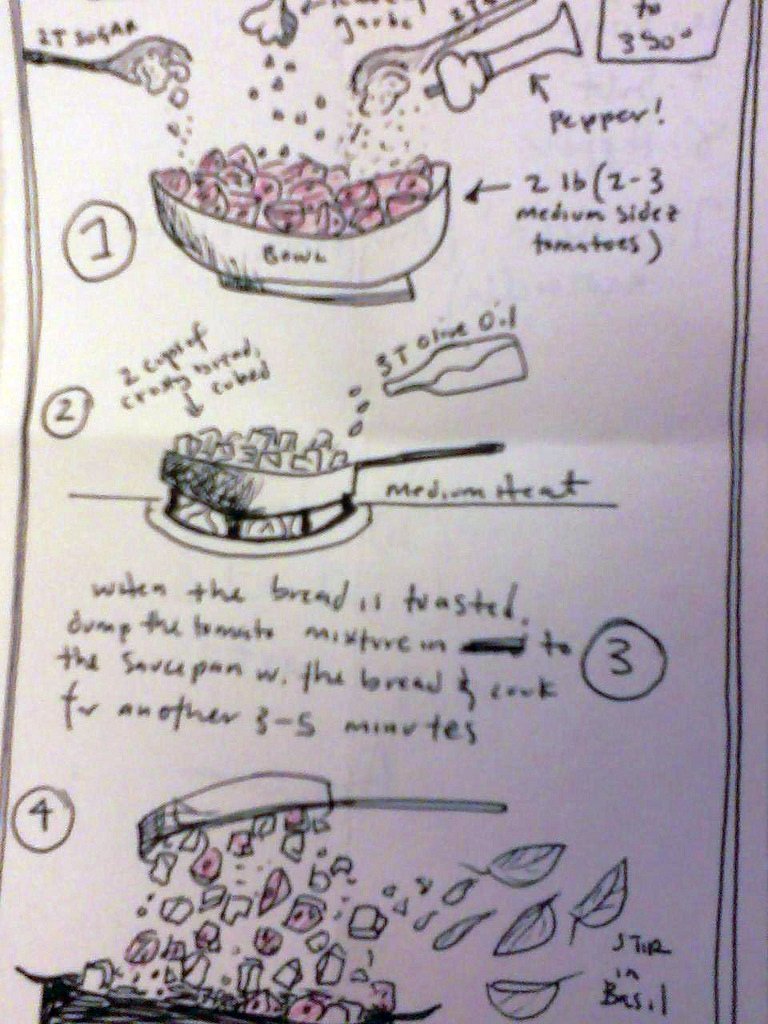 2T SUGAR
garlic
to
350°
Pepper!
1
2 lb (2-3
medium sidez
tomatoes)
BOWL
2
2 cups of
crusty bread,
cubed
3T Olive Oil
medium Heat
when the bread is toasted,
dump the tomato mixture in to
the saucepan w. the bread & cook
for another 3-5 minutes
3
4
STIR
in
Basil